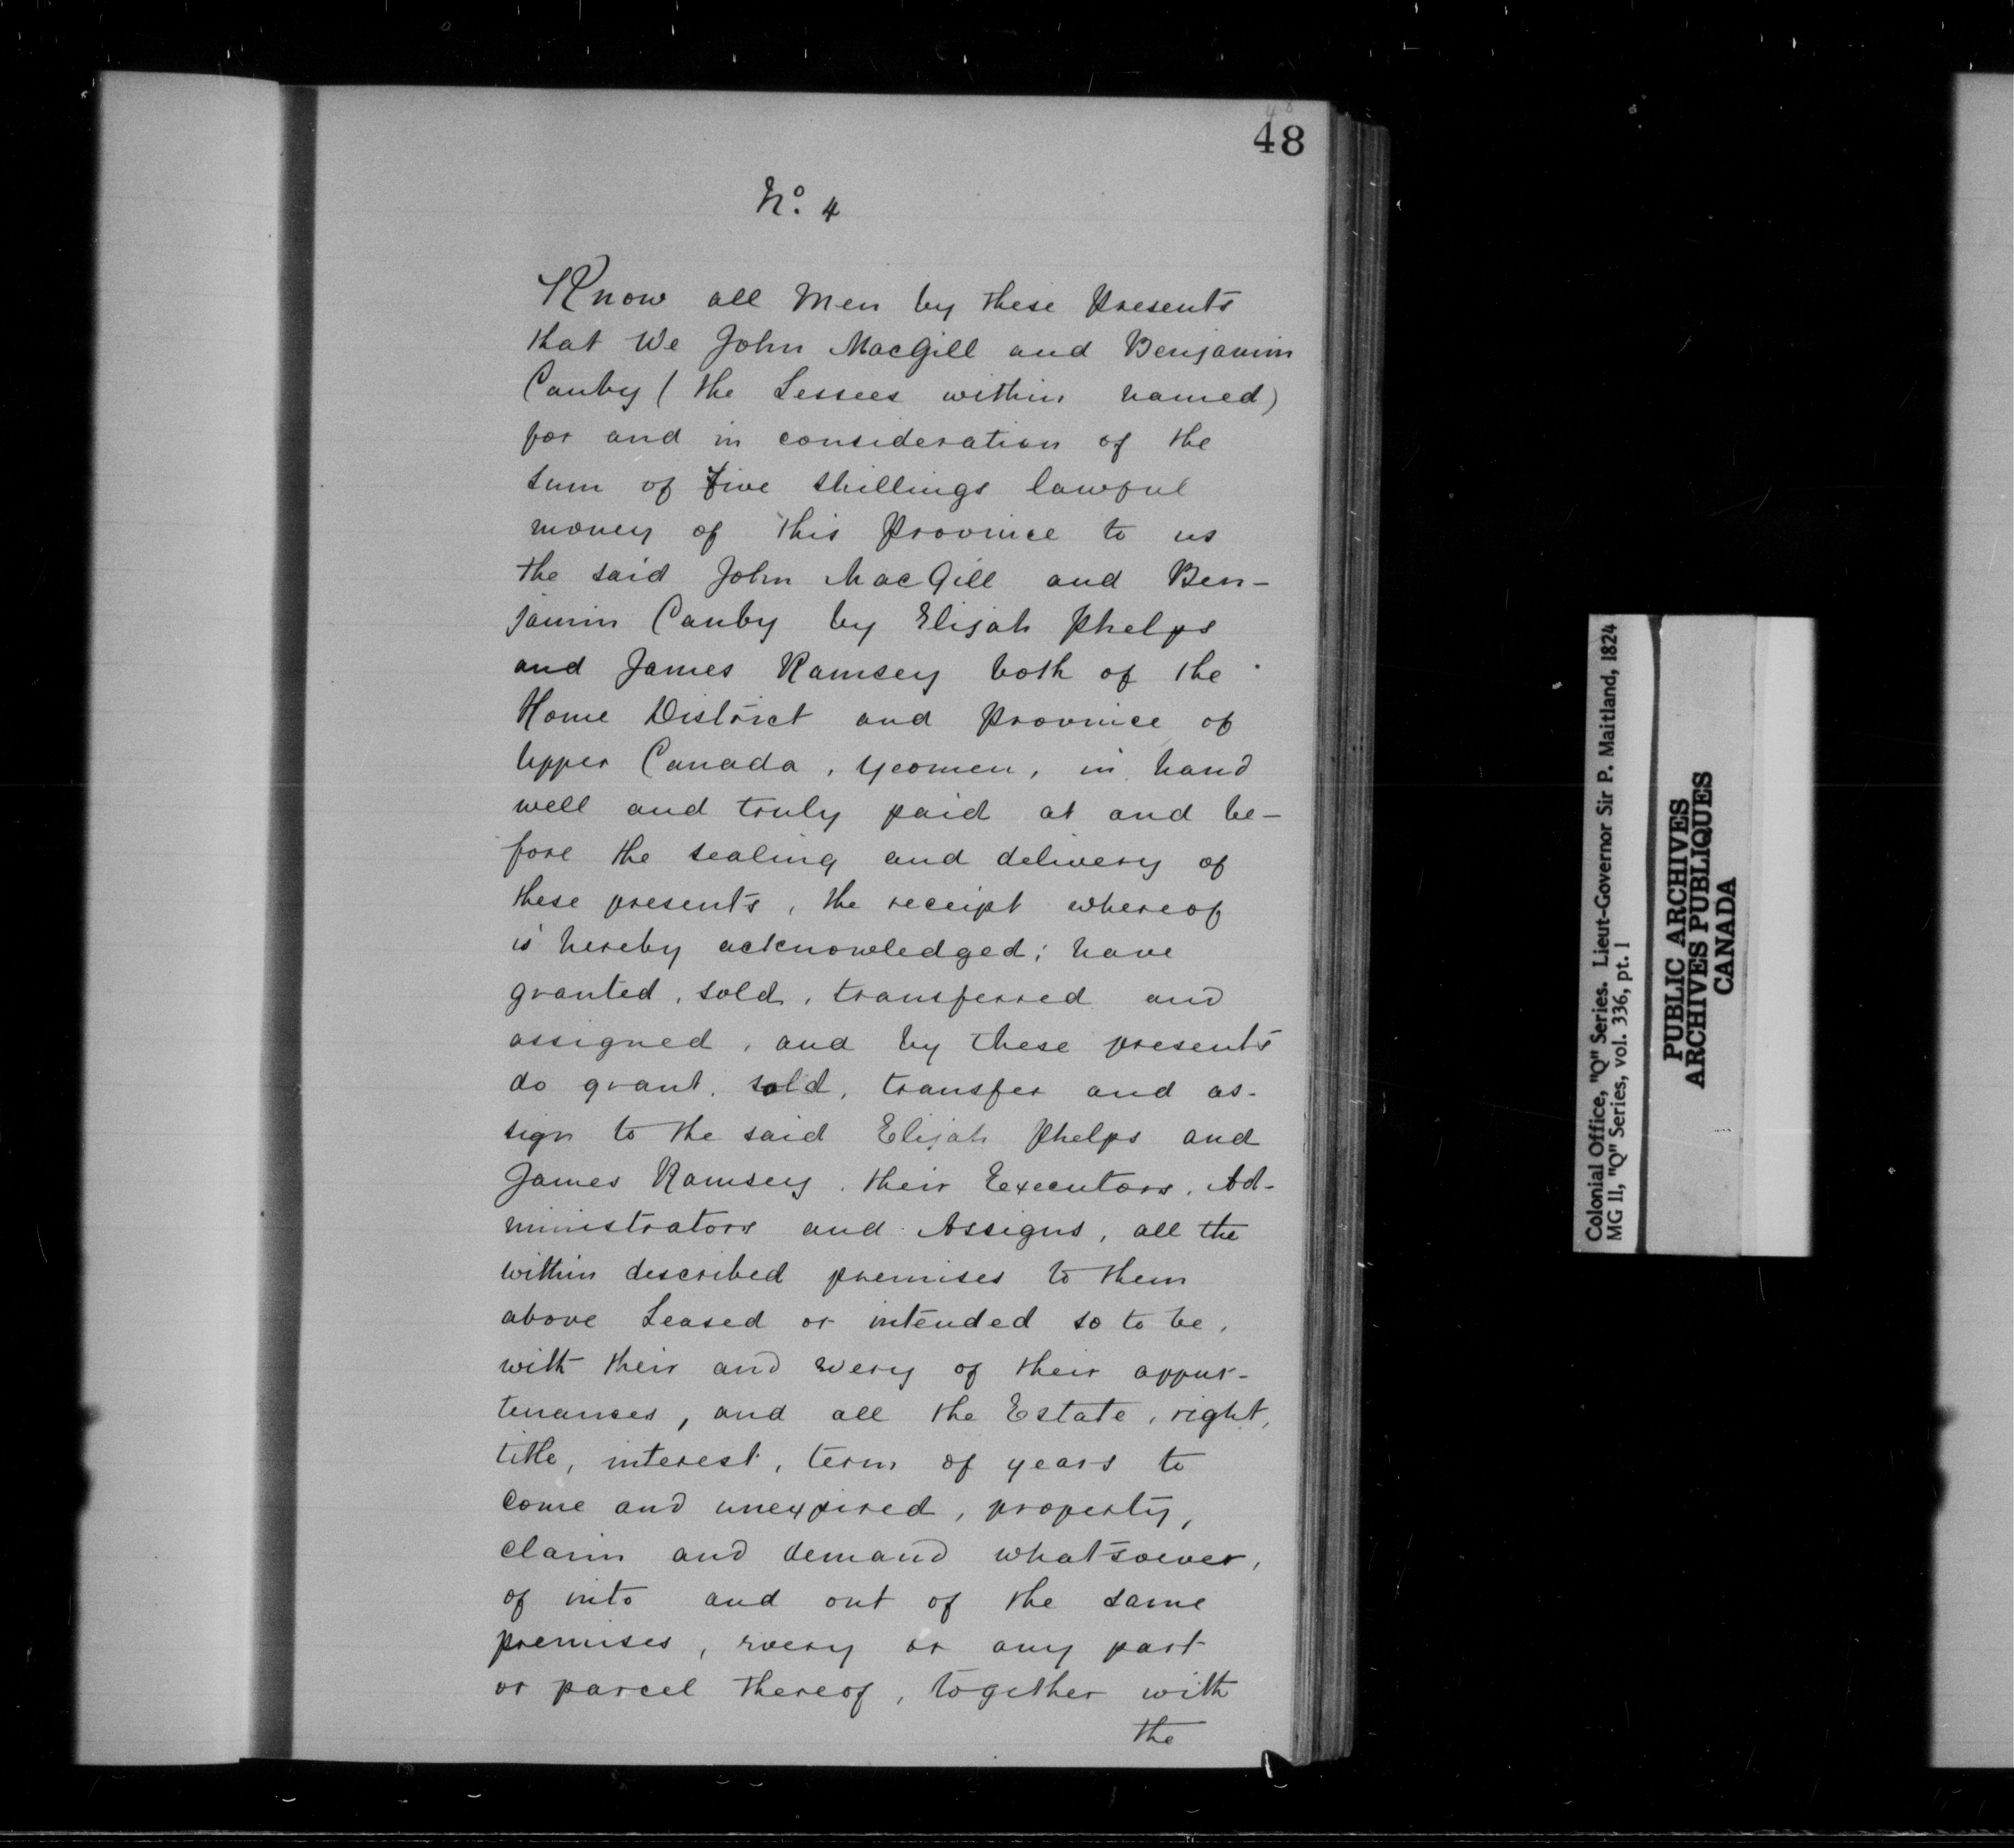 48
48
No. 4
Know all Men by these Presents
that We John MacGill and Benjamin
Canby (the Lessees within named)
for and in consideration of the
sum of Five shillings lawful
money of this Province to us
the said John MacGill and Ben-
jamin Canby by Elijah Phelps
and James Ramsey both of the
Home District and Province of
Upper Canada, Yeomen, in hand
well and truly paid at and be-
fore the sealing and delivery of
these presents, the receipt whereof
is hereby acknowledged; have
granted, sold, transferred and
assigned, and by these presents
do grant, sold, transfer and as-
sign to the said Elijah Phelps and
James Ramsey, their Executors, Ad-
ministrators and Assigns, all the
within described premises to them
above Leased or intended so to be,
with their and every of their appur-
tenances, and all the Estate, right,
title, interest, term of years to
come and unexpired, property,
claim and demand whatsoever,
of into and out of the same
premises, every or any part
or parcel thereof, together with
the
Colonial Office, "Q" Series. Lieut-Governor Sir P. Maitland, 1824
MG 11, "Q" Series, vol. 336, pt. 1
PUBLIC ARCHIVES
ARCHIVES PUBLIQUES
CANADA